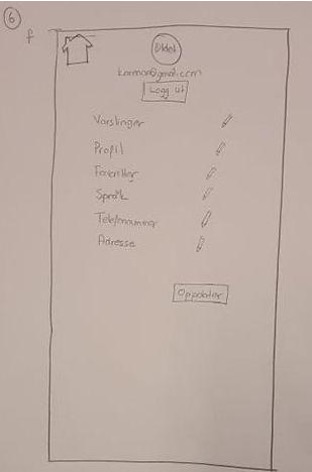 6
f
Bildet
Logg ut
Varslinger
Profil
Favoritter
Språk
Telefonnummer
Adresse
Oppdater